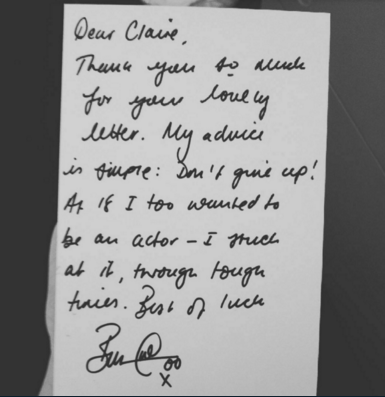 Dear Claire,
Thank you so much
for your lovely
letter. My advice
is simple: Don't give up!
At 18 I too wanted to
be an actor – I stuck
at it, through tough
times. Best of luck
x